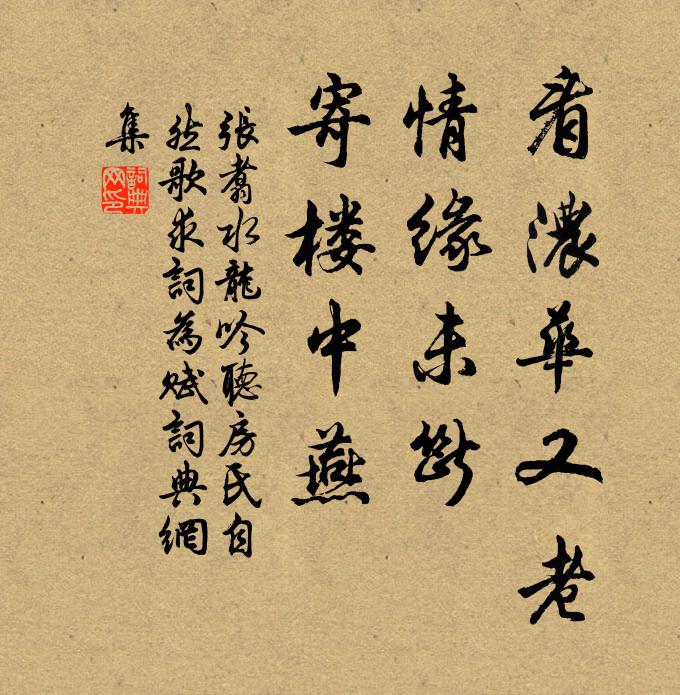 看濃華又老
情緣未斷
寄楼中燕
張翥水龍吟聽房氏自
然歌求詞為賦詞典網
集
詞典
网印